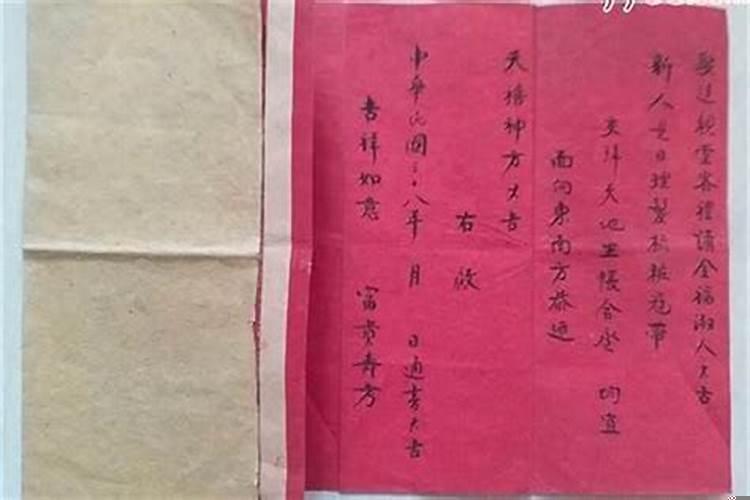 娶送親宜客禮請全福淑人大吉
新人是日理髮梳粧冠帶
交拜天地坐帳合卺 均宜
面向東南方恭迎
天德神方大吉
右啟
中華民國三十八年 月 日通書大吉
吉祥如意 富貴壽方